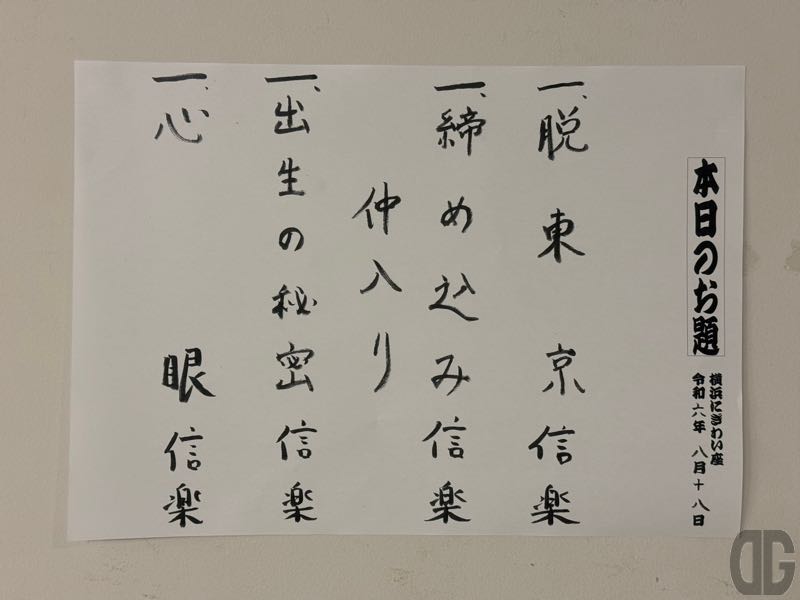 本日のお題
横浜にぎわい座
令和六年 八月十八日
一、脱東京 信楽
一、締め込み 信楽
仲入り
一、出生の秘密 信楽
一、心眼 信楽
DG